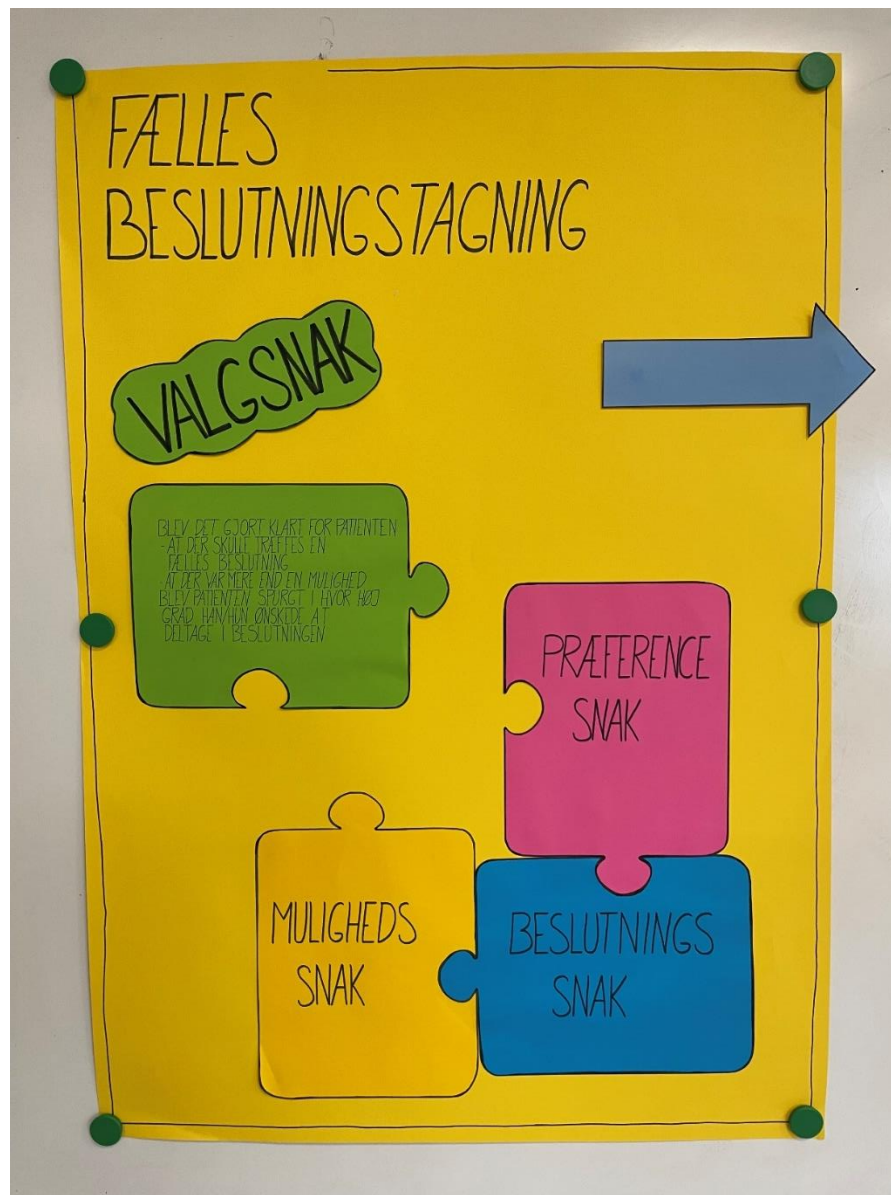 FÆLLES
BESLUTNINGSTAGNING
VALGSNAK
BLEV DET GJORT KLART FOR PATIENTEN
- AT DER SKULLE TRÆFFES EN
FÆLLES BESLUTNING
- AT DER VAR MERE END EN MULIGHED
BLEV PATIENTEN SPURGT I HVOR HØJ
GRAD HAN/HUN ØNSKEDE AT
DELTAGE I BESLUTNINGEN
PRÆFERENCE
SNAK
MULIGHEDS
SNAK
BESLUTNINGS
SNAK